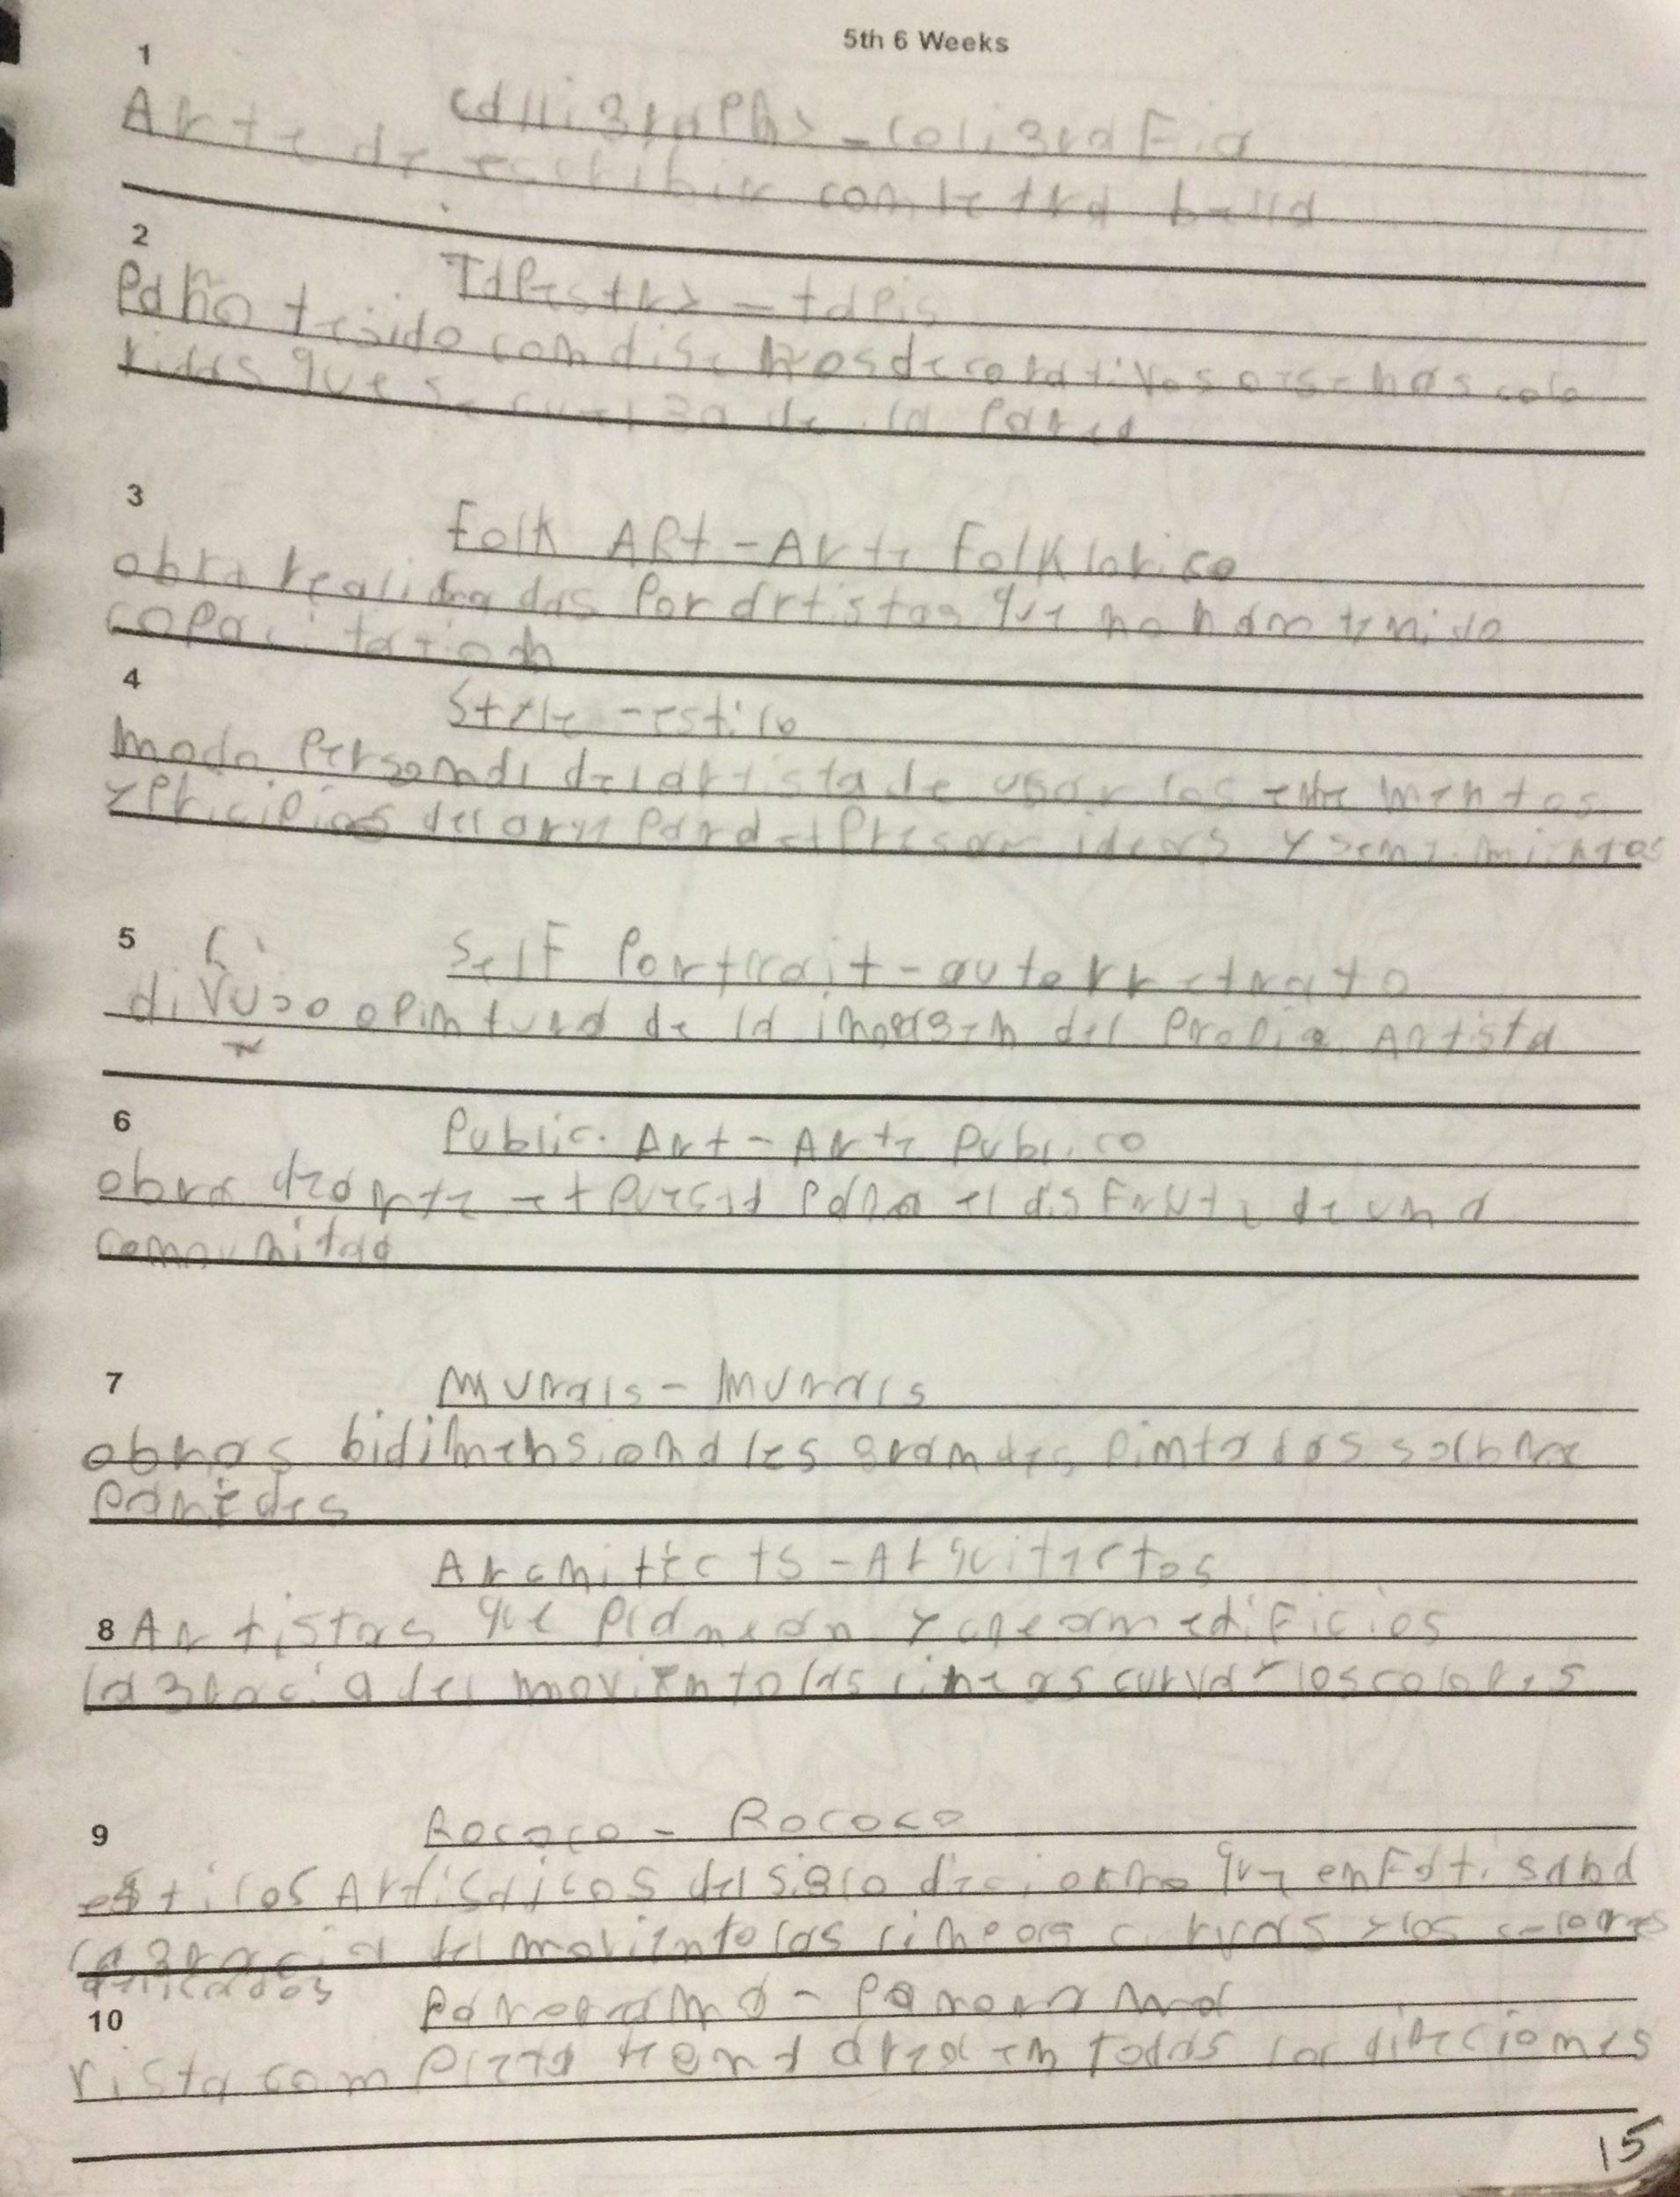 5th 6 Weeks
1
calligraphy - caligraFia
Arte de escribir con letra bella
2
Tapestry = tapis
Paño tejido con diseños decorativos o escenas colo
ridas que se cuelga de la Pared
3
folk ARt - Arte Folklorico
obra realizadas Por artistas que no han tenido
capacitacion
4
Style - estilo
modo Personal del artista de usar los elementos
y Pricipios del arte Para expresar ideas y sentimientos
5
self Portrait - autorretrato
divujo o pintura de la imagen del Propio Artista
6
Public Art - Arte Publico
obra de arte expuesta Para el disFrute de una
comunitad
7
murals - murals
obras bidimensionales grandes Pintadas sobre
Paredes
Architects - Arquitectos
8 Artistas que Planean y crean ediFicios
la gracia del moviento las lineas curva y los colores
9
Rococo - Rococo
estilos Artisticos del siglo dieciocho que enFatisaba
la gracia del moviento las lineas curvas y los colores
delicados
10
Panorama - Panorama
vista completa de una area en todas las direciones
15